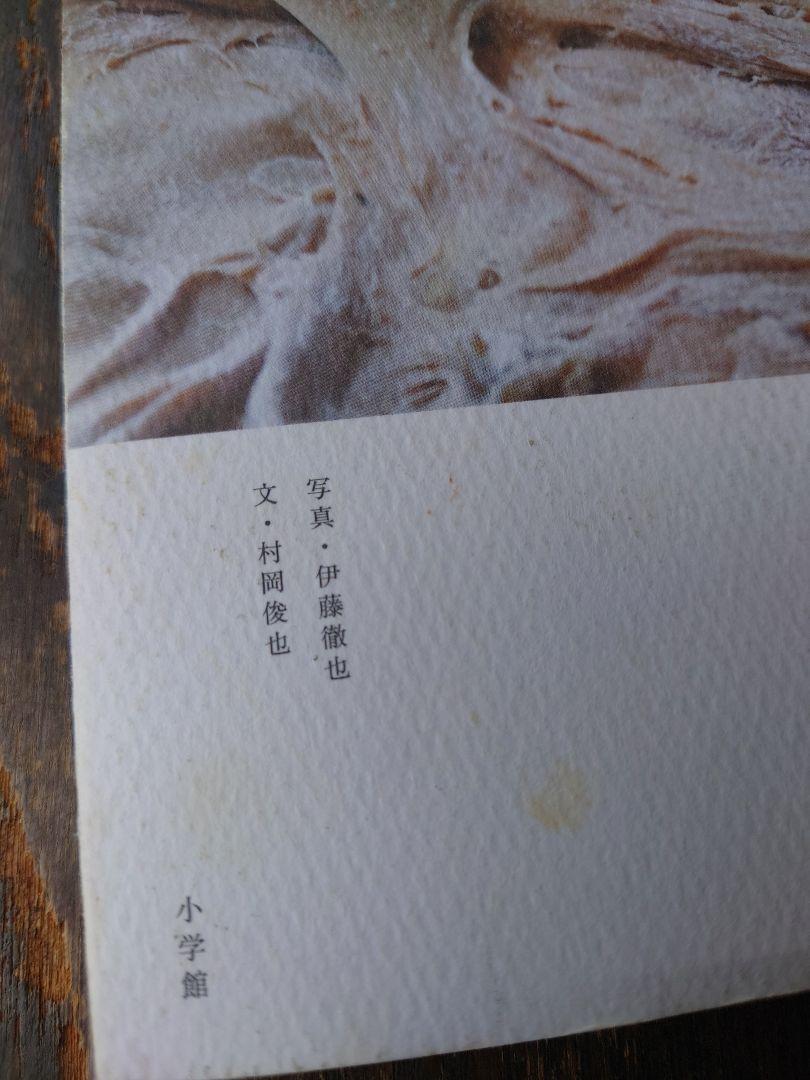 写真・伊藤徹也
文・村岡俊也
小学館